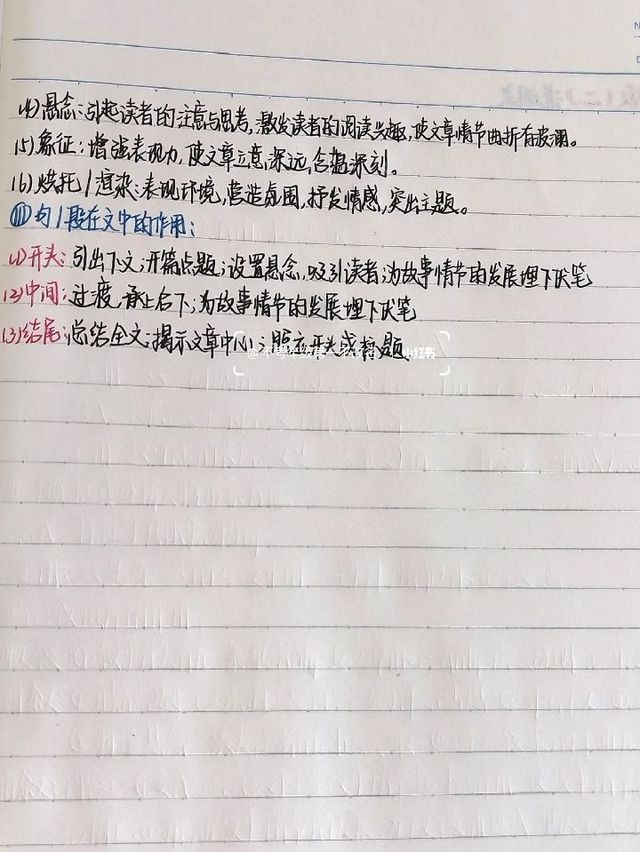 (4) 悬念:引起读者的注意与思考,激发读者的阅读兴趣,使文章情节曲折有波澜。
(5) 象征:增强表现力,使文章立意深远,含蕴深刻。
(6) 烘托/渲染:表现环境,营造氛围,抒发情感,突出主题。
(Ⅲ) 句/段在文中的作用:
(1) 开头:引出下文;开篇点题;设置悬念,吸引读者;为故事情节的发展埋下伏笔
(2) 中间:过渡,承上启下;为故事情节的发展埋下伏笔
(3) 结尾:总结全文;揭示文章中心;照应开头或标题
小红书